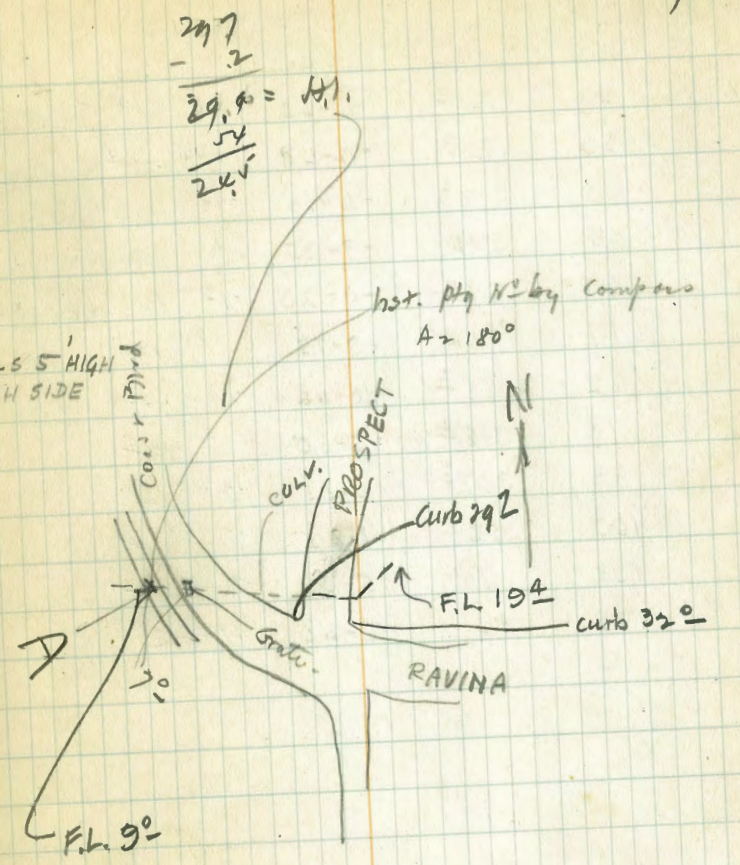 297
- .2
29.90 = H.I.
54
24.5
Inst. ptg N° by Compass
A = 180°
LS 5' HIGH
H SIDE
Coast Blvd
CULV.
PROSPECT
N
Curb 29 2
F.L. 19 4
curb 32 0
D
Grate.
RAVINA
F.L. 9 0